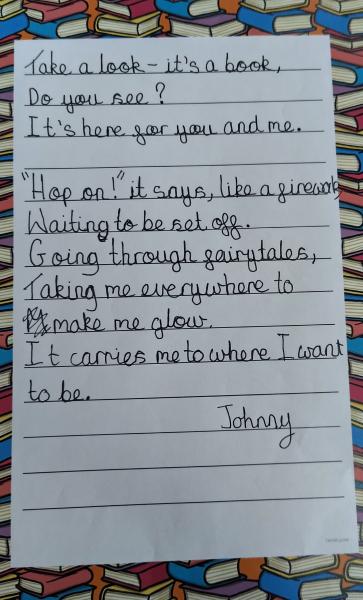 Take a look - it's a book,
Do you see?
It's here for you and me.
"Hop on!" it says, like a firework
Waiting to be set off.
Going through fairytales,
Taking me everywhere to
make me glow.
It carries me to where I want
to be.
Johnny